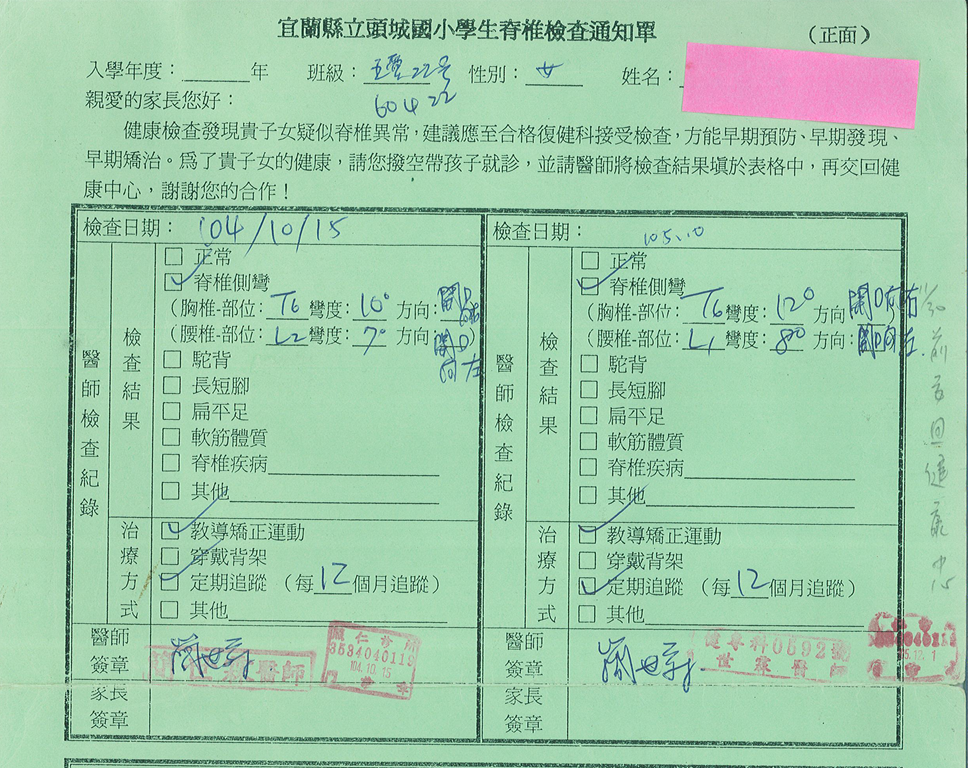 宜蘭縣立頭城國小學生脊椎檢查通知單 (正面)
入學年度：　年　班級：五 22号　性別：女　姓名：
60422
親愛的家長您好：
健康檢查發現貴子女疑似脊椎異常，建議應至合格復健科接受檢查，方能早期預防、早期發現、
早期矯治。為了貴子女的健康，請您撥空帶孩子就診，並請醫師將檢查結果填於表格中，再交回健
康中心，謝謝您的合作！
檢查日期：104/10/15
醫師檢查紀錄
檢查結果
□ 正常
□ 脊椎側彎
(胸椎-部位：T6 彎度：10° 方向：開口
(腰椎-部位：L2 彎度：7° 方向：開口向左
□ 駝背
□ 長短腳
□ 扁平足
□ 軟筋體質
□ 脊椎疾病
□ 其他
治療方式
□ 教導矯正運動
□ 穿戴背架
□ 定期追蹤 (每12個月追蹤)
□ 其他
醫師簽章
醫師
3584040119
104.10.15
家長簽章
檢查日期：105.10
醫師檢查紀錄
檢查結果
□ 正常
□ 脊椎側彎
(胸椎-部位：T6 彎度：12° 方向：開口向右
(腰椎-部位：L1 彎度：8° 方向：開口向左
□ 駝背
□ 長短腳
□ 扁平足
□ 軟筋體質
□ 脊椎疾病
□ 其他
治療方式
□ 教導矯正運動
□ 穿戴背架
□ 定期追蹤 (每12個月追蹤)
□ 其他
醫師簽章
復專科0592號
醫師
家長簽章
前交回健康中心